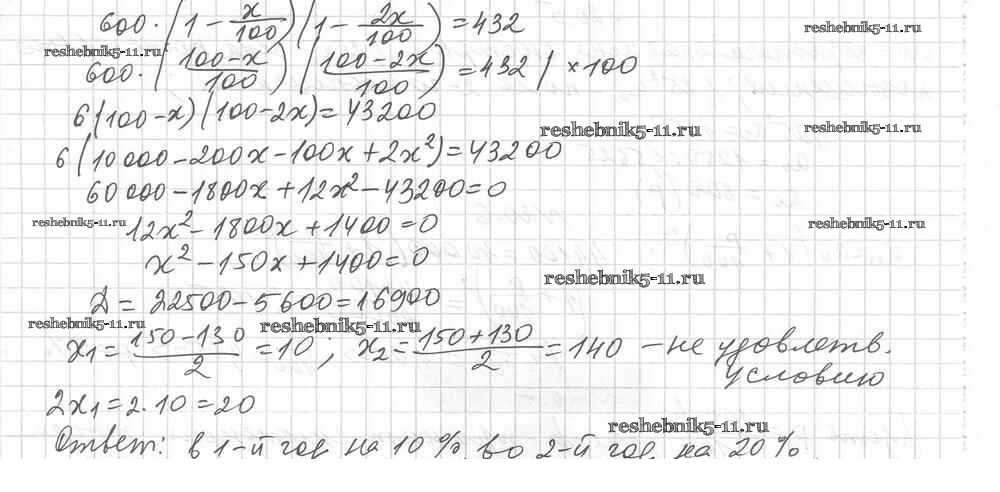 600·(1 - x/100)(1 - 2x/100) = 432
reshebnik5-11.ru reshebnik5-11.ru
600·((100-x)/100)((100-2x)/100) = 432 | ×100
6(100-x)(100-2x) = 43200
reshebnik5-11.ru reshebnik5-11.ru
6(10000-200x-100x+2x²)=43200
60000-1800x+12x²-43200=0
reshebnik5-11.ru reshebnik5-11.ru
12x²-1800x+1400=0
x²-150x+1400=0
reshebnik5-11.ru
D = 22500-5600=16900
reshebnik5-11.ru reshebnik5-11.ru
x₁ = (150-130)/2 = 10; x₂ = (150+130)/2 = 140 - не удовлетв.
условию
2x₁=2·10=20
reshebnik5-11.ru
Ответ: в 1-й год на 10%, во 2-й год на 20%